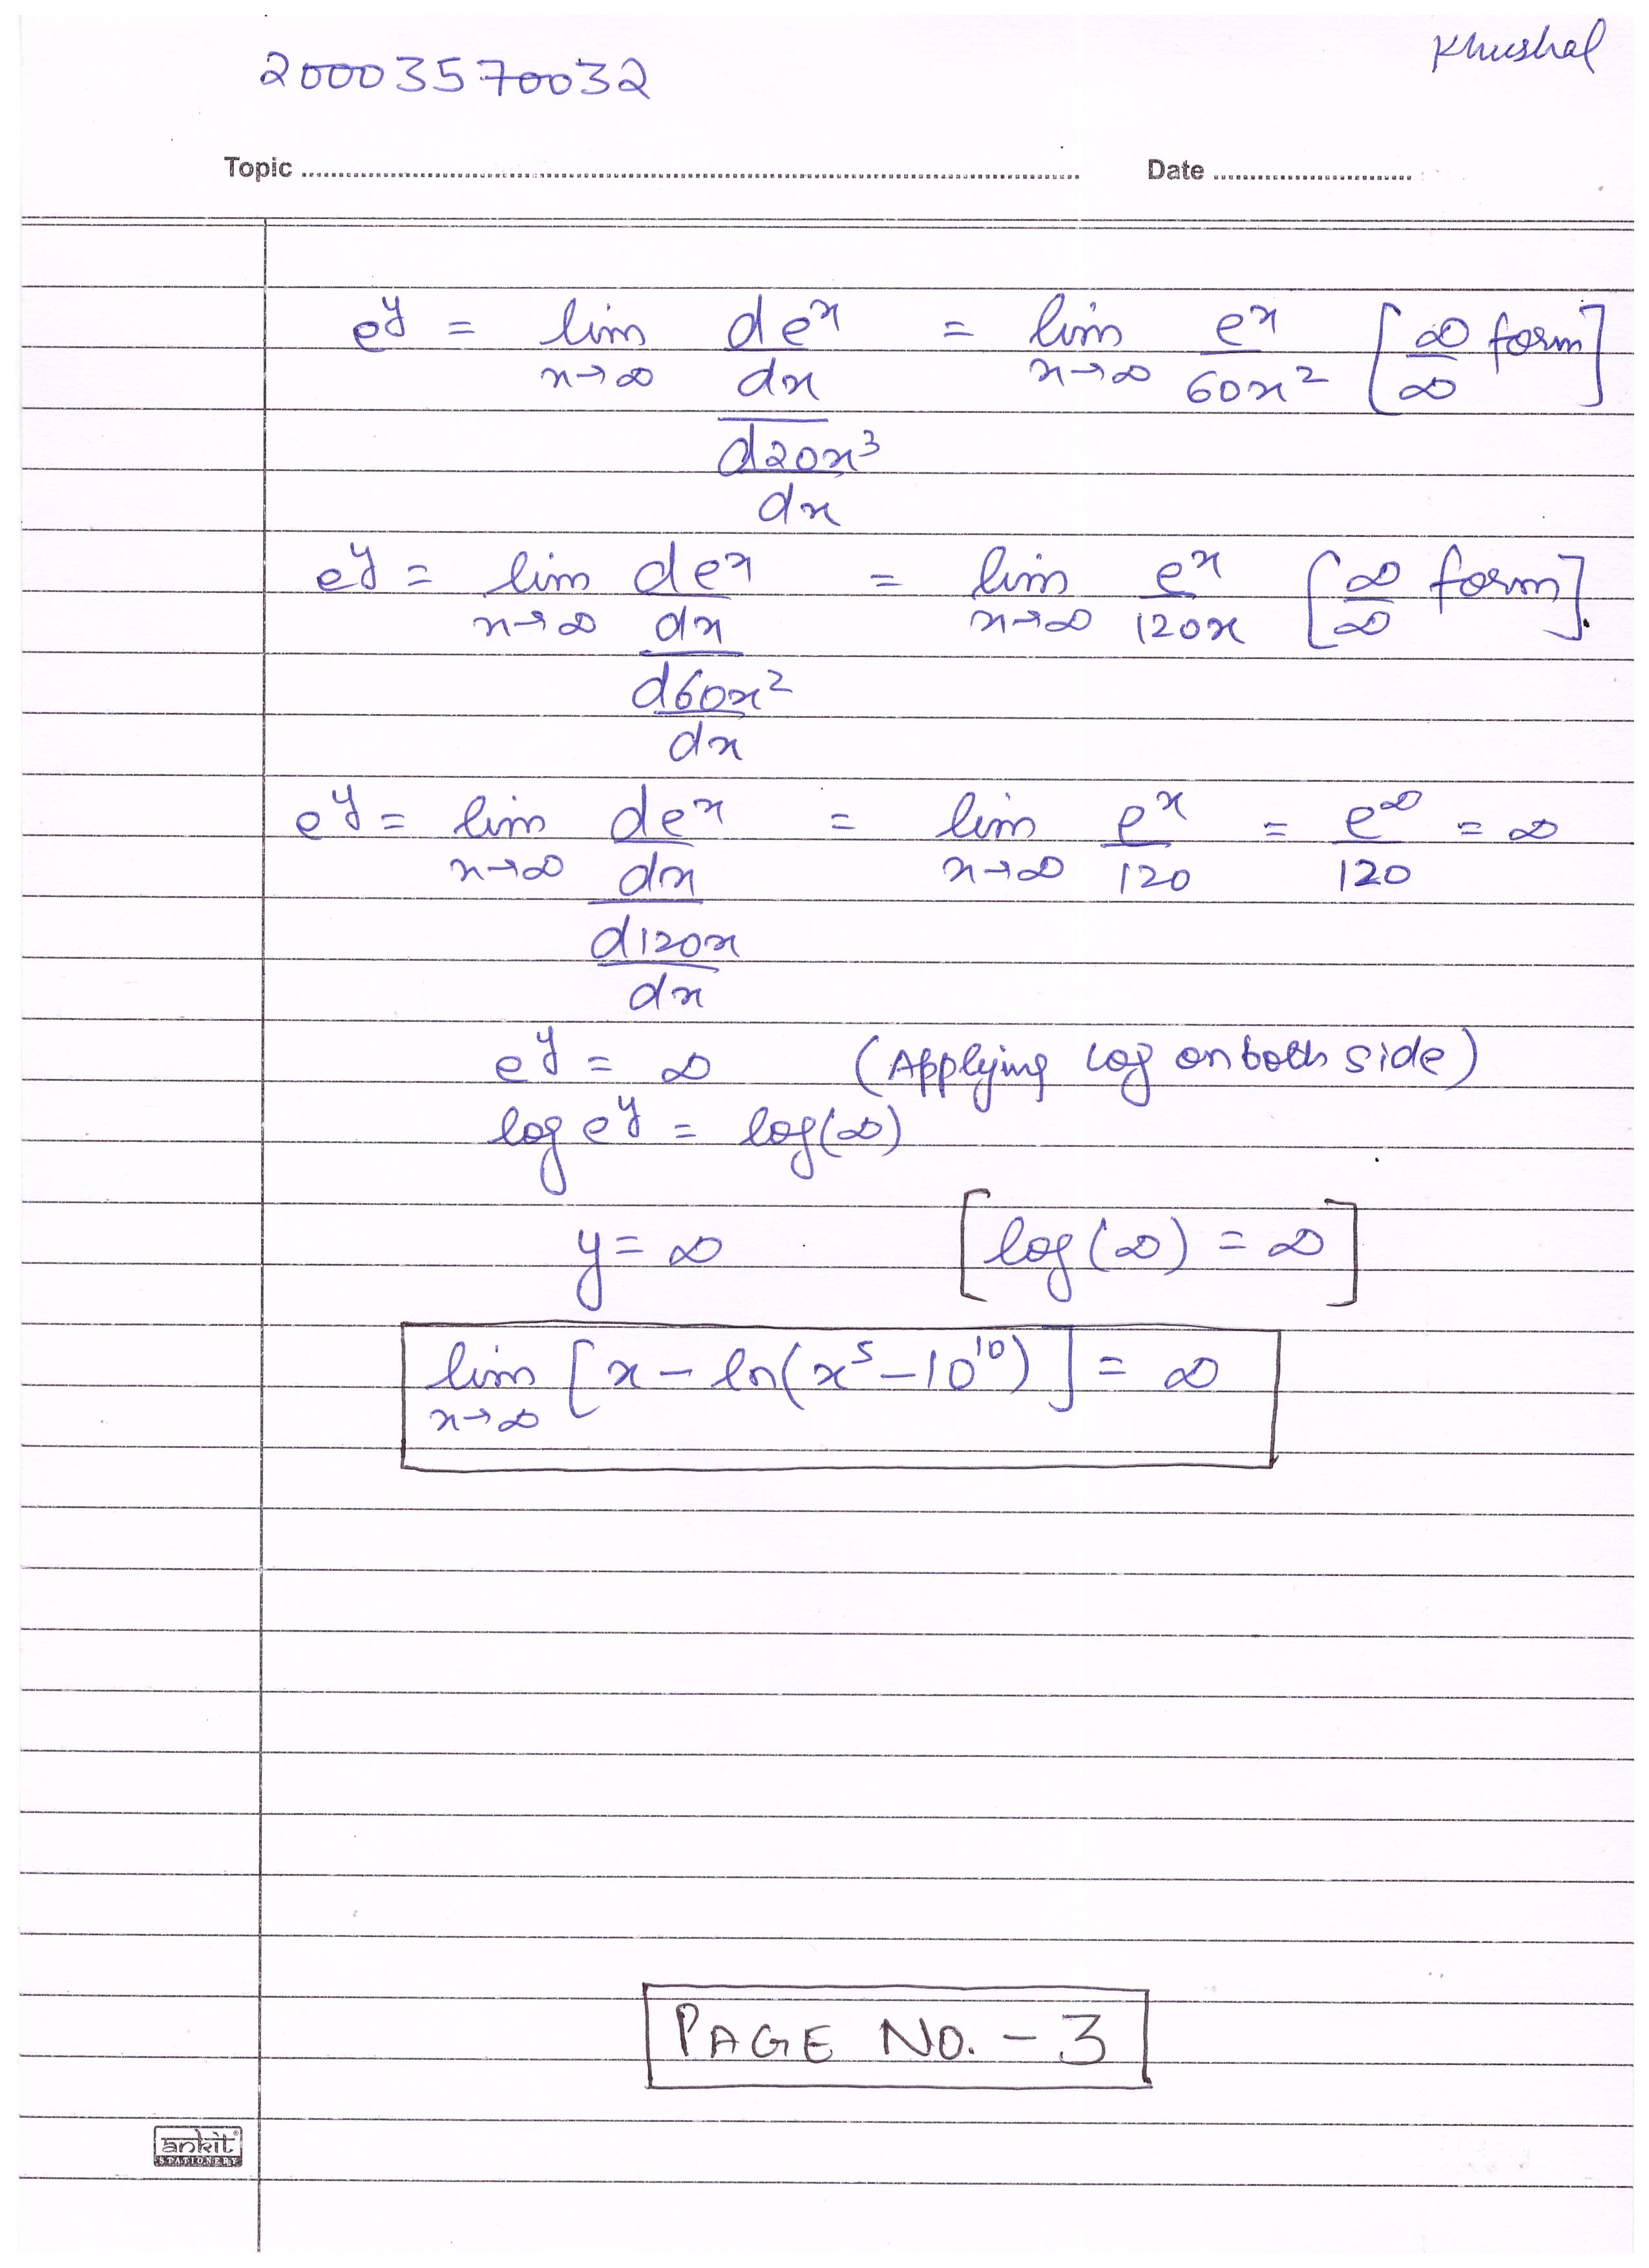 20003570032
Khushal
Topic ........................ Date ............
e^y = lim x→∞ (de^x/dx)/(d20x³/dx) = lim x→∞ e^x/60x² [∞/∞ form]
e^y = lim x→∞ (de^x/dx)/(d60x²/dx) = lim x→∞ e^x/120x [∞/∞ form].
e^y = lim x→∞ (de^x/dx)/(d120x/dx) = lim x→∞ e^x/120 = e^∞/120 = ∞
e^y = ∞ (Applying log on both side)
log e^y = log(∞)
y = ∞ [log(∞) = ∞]
lim x→∞ [x − ln(x⁵ − 10¹⁰)] = ∞
PAGE NO. - 3
ankit
STATIONERY